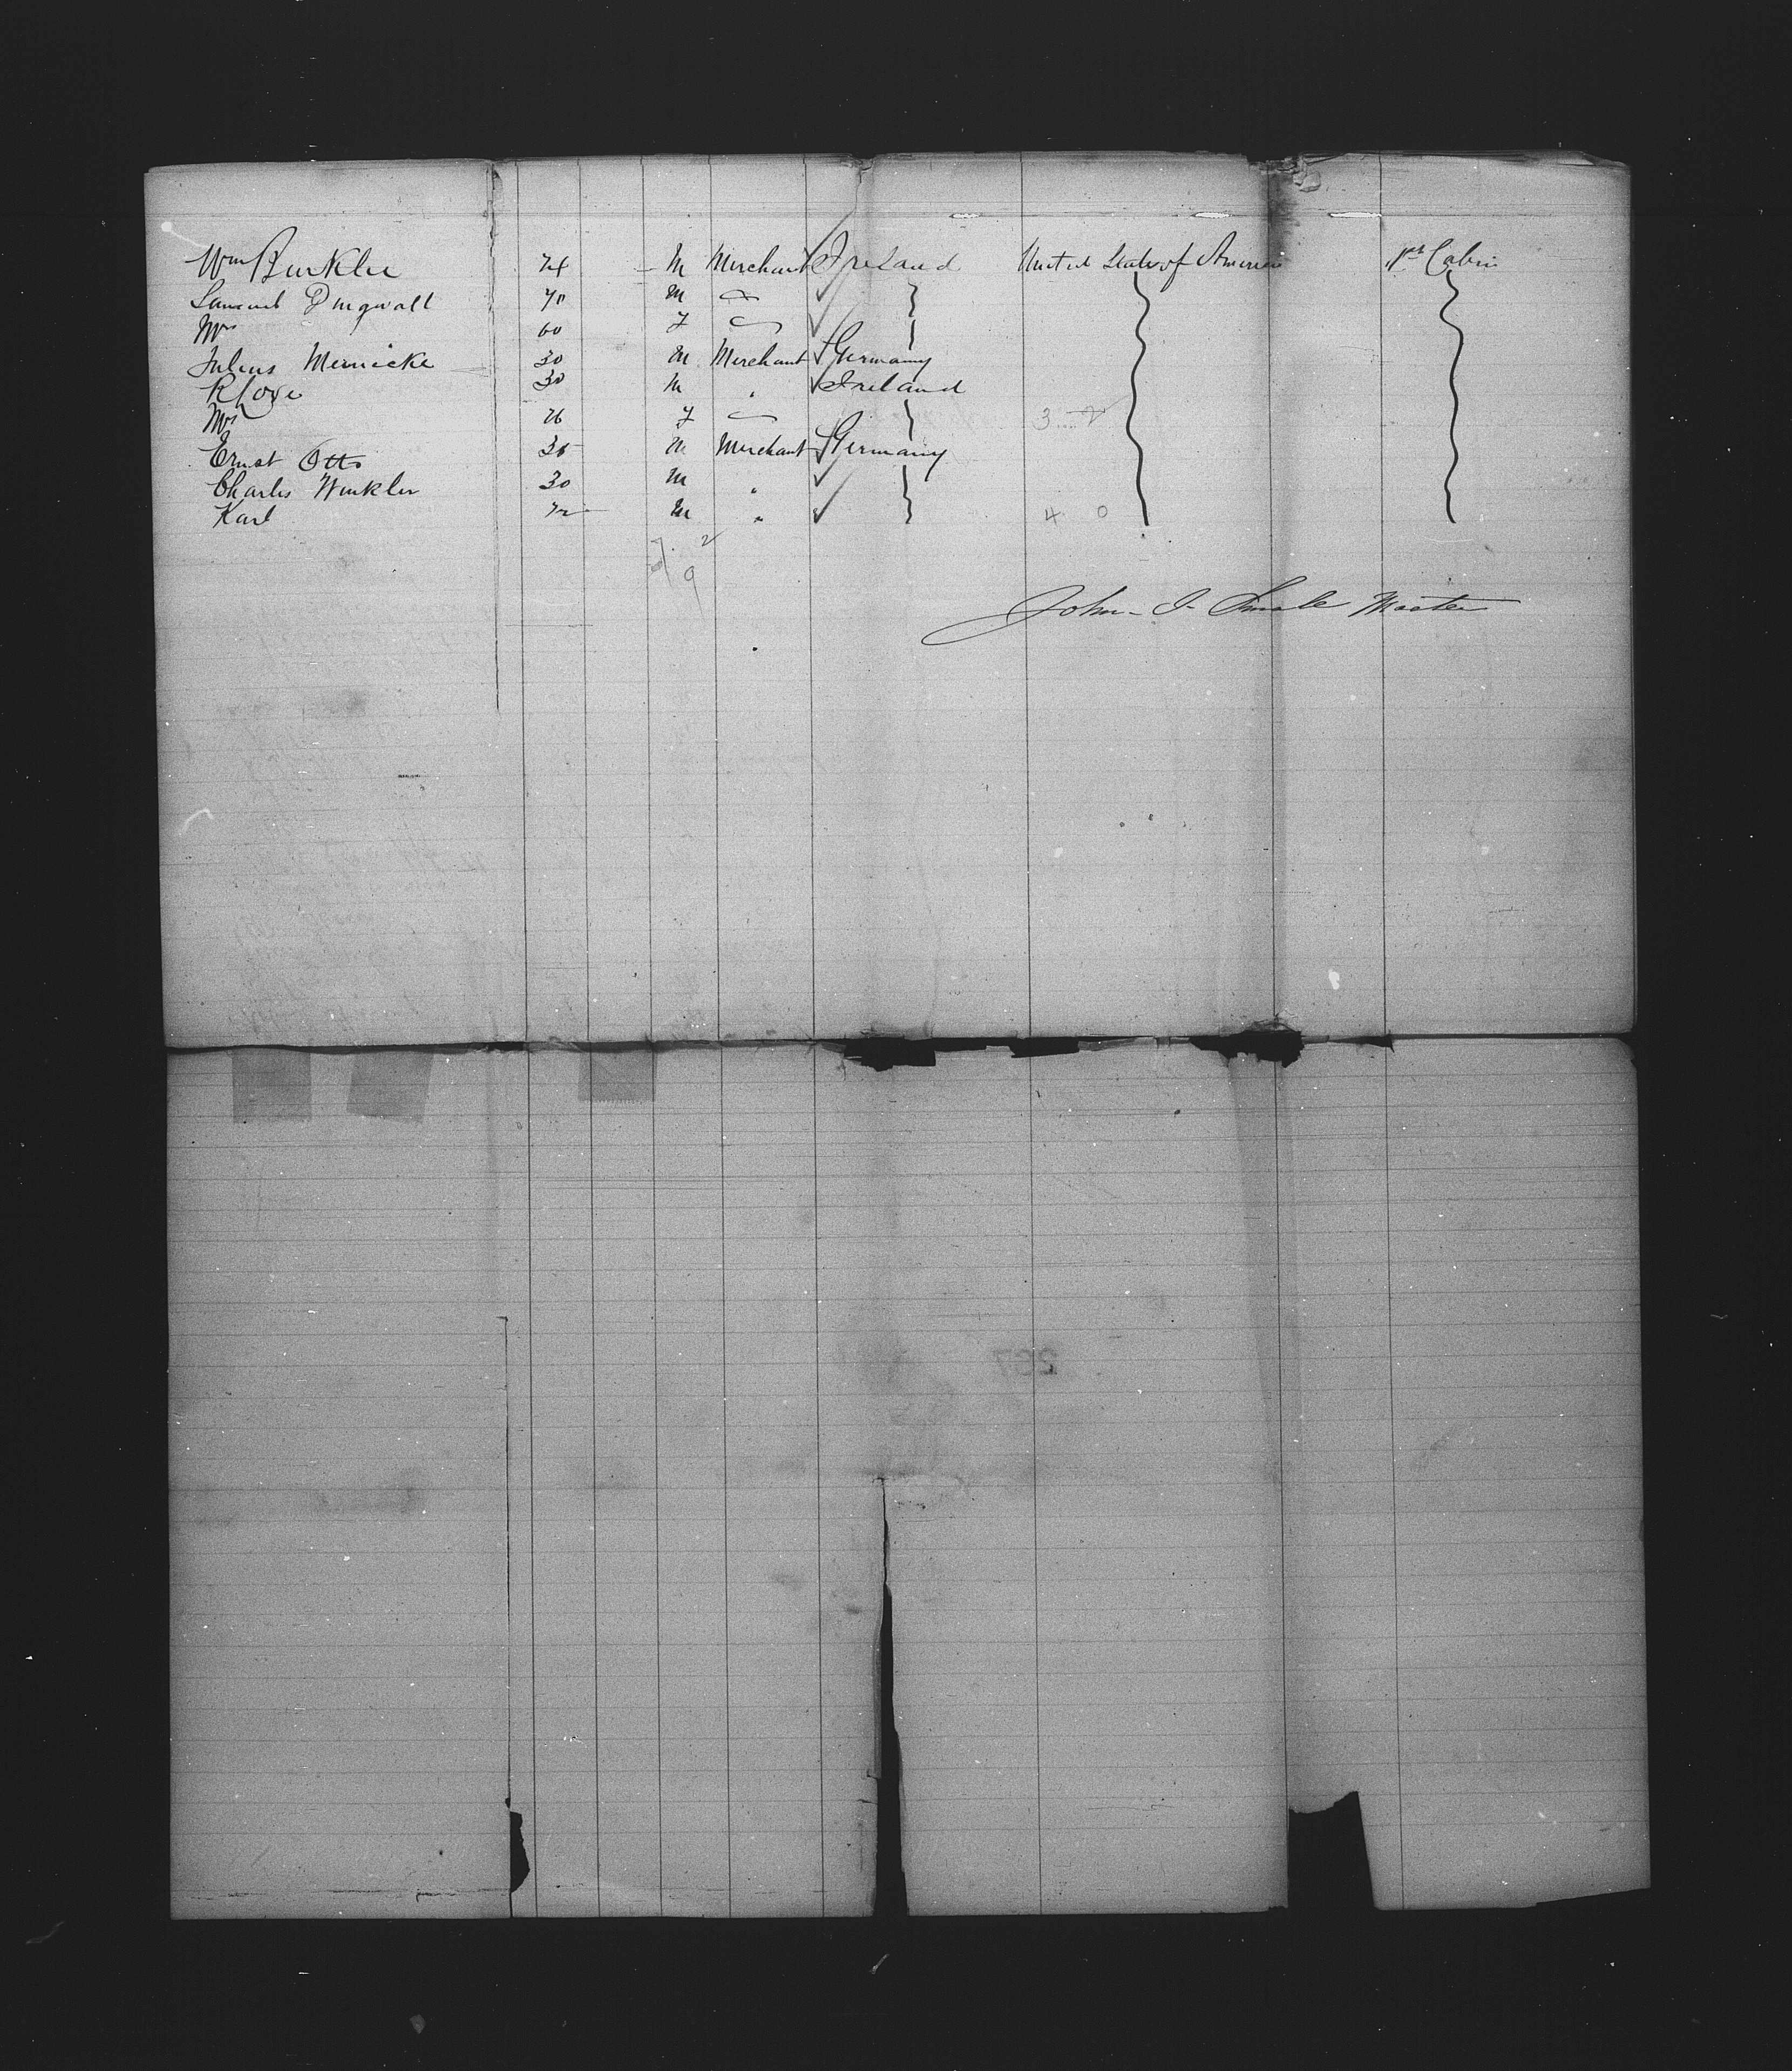 Wm Burkler 24 M Merchant Ireland United States of America 1st Cabin
Samuel Dingwall 70 M
Mrs 60 F
Julius Meinicke 30 M Merchant Germany
30 M " Ireland
Mrs 26 F 3 2
Ernst Otto 35 M Merchant Germany
Charles Winkler 30 M "
Karl M " 4 0
7. 2
9
John Master
267